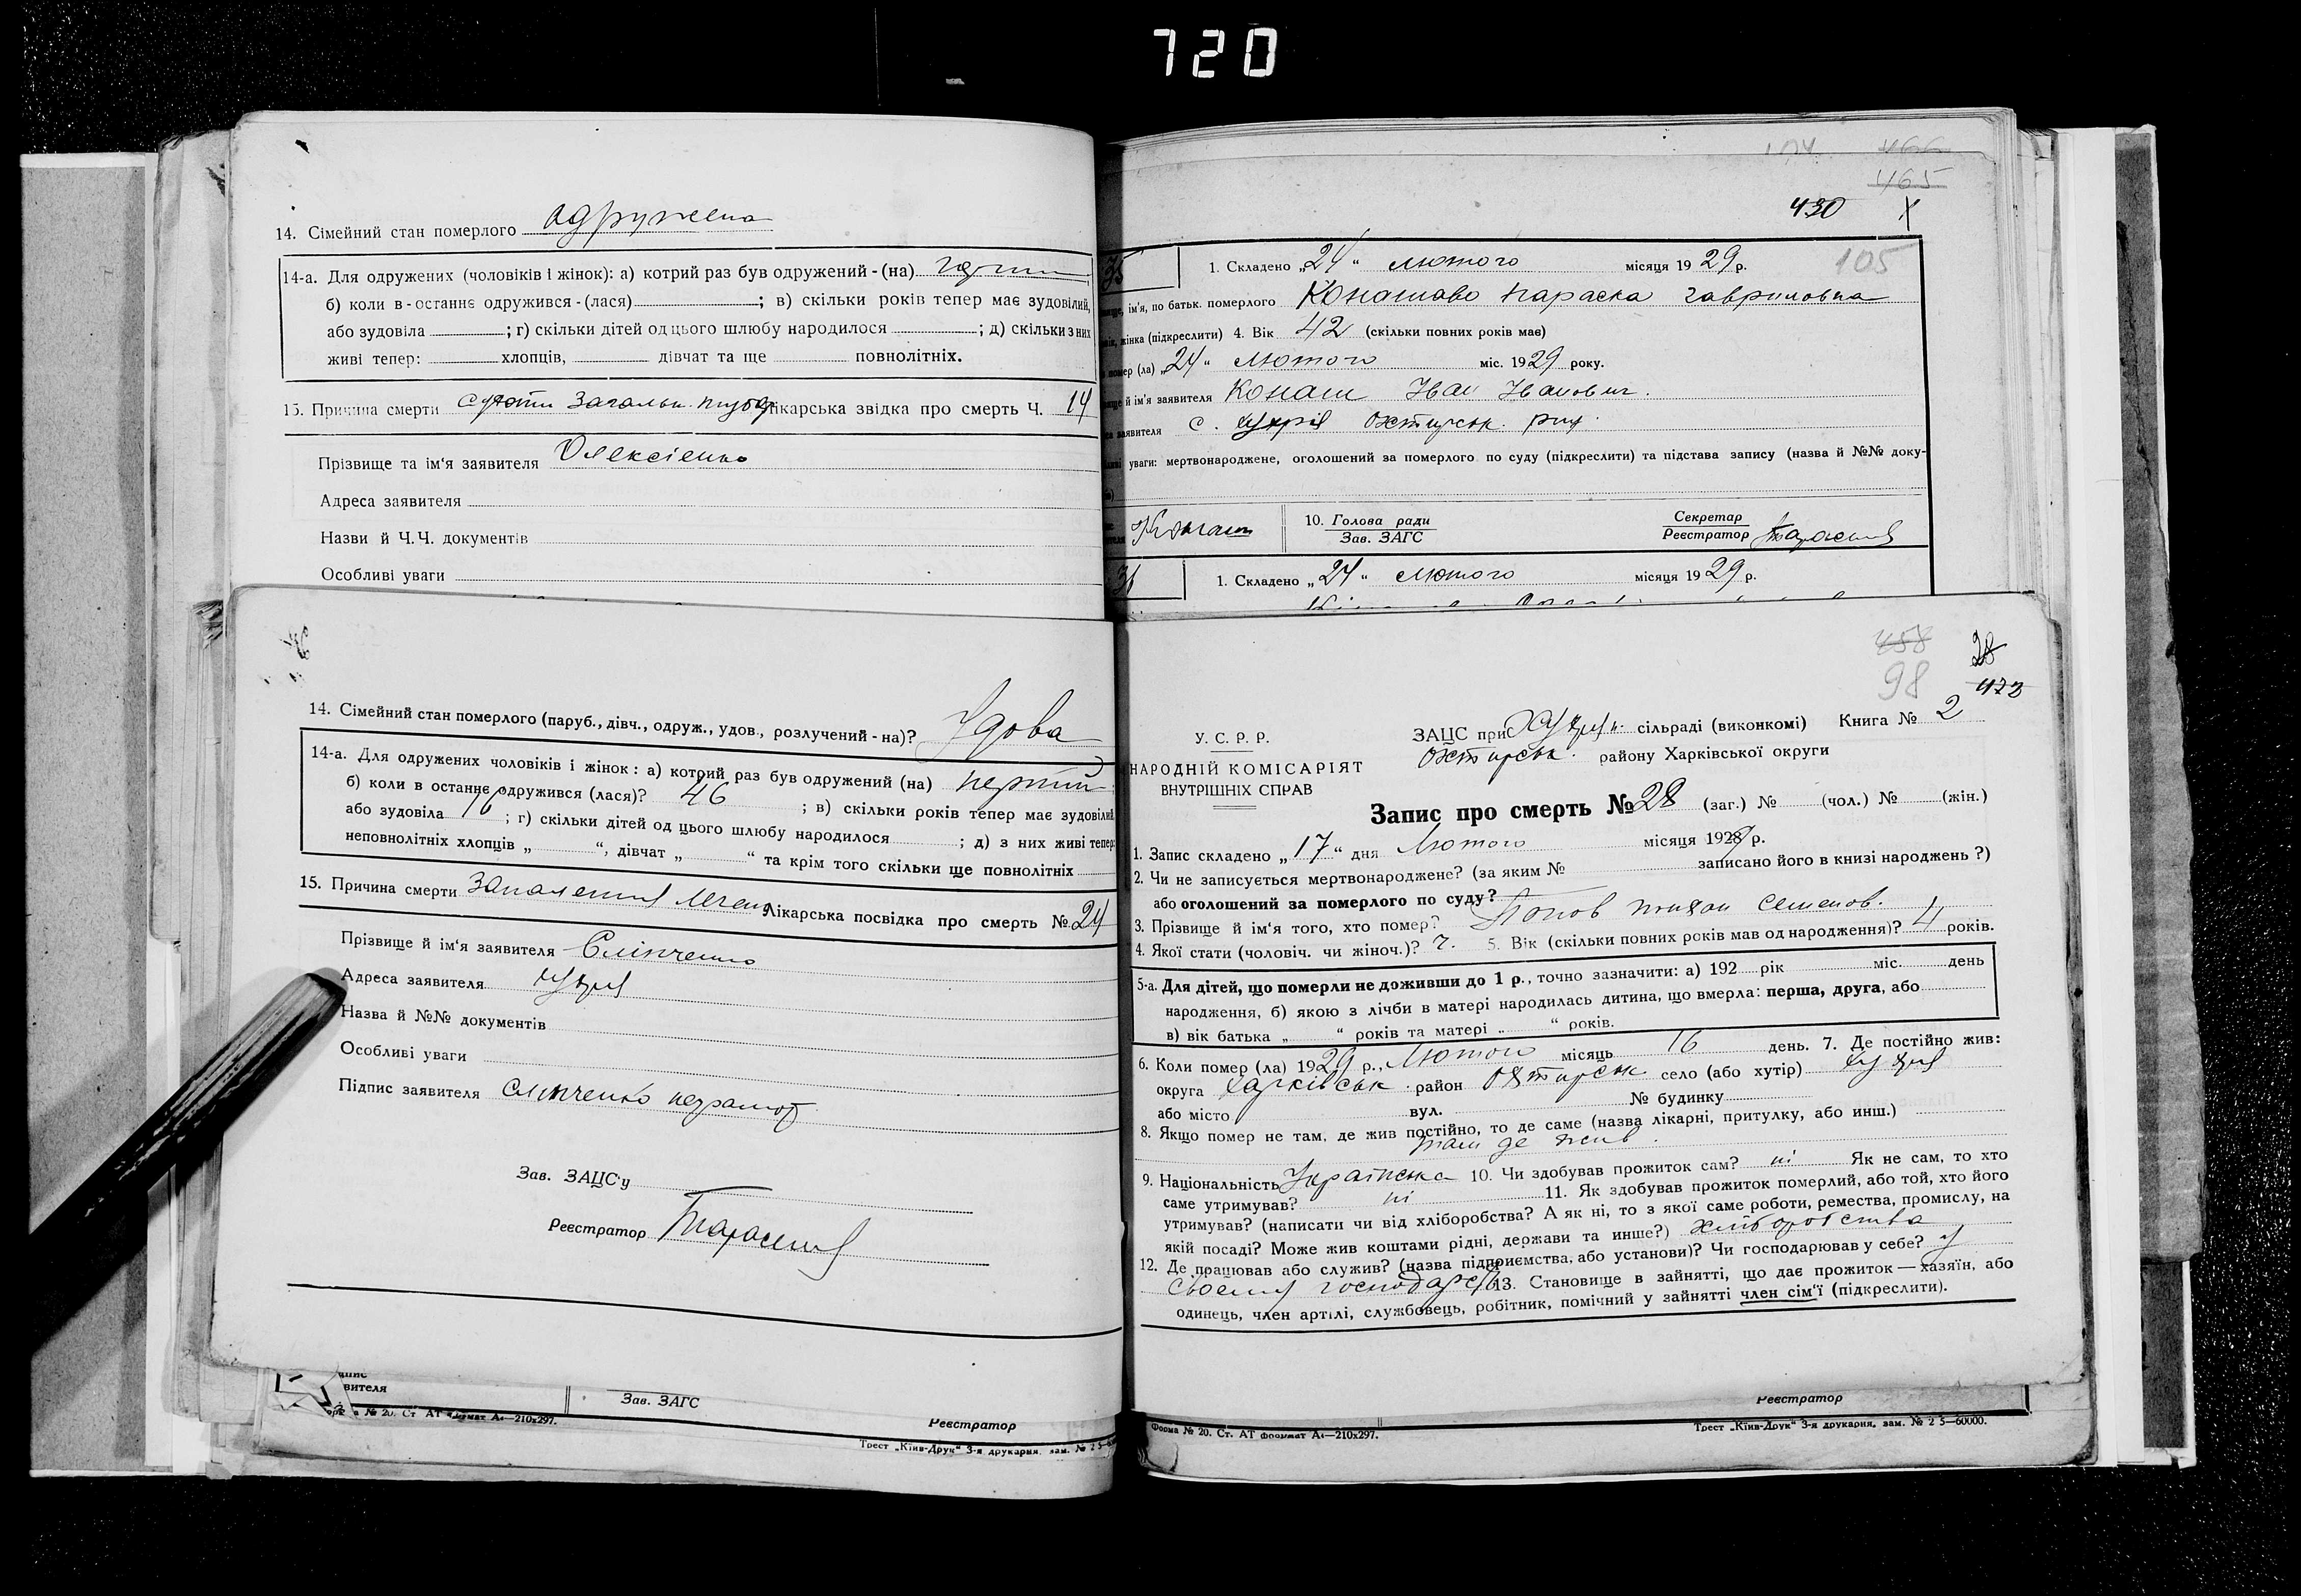 720
14. Сімейний стан померлого одружена
14-а. Для одружених (чоловіків і жінок): а) котрий раз був одружений - (на)
б) коли в-останнє одружився-(лася) ; в) скільки років тепер має зудовілий,
або зудовіла ; г) скільки дітей од цього шлюбу народилося ; д) скільки з них
живі тепер: хлопців, дівчат та ще повнолітніх.
15. Причина смерти лікарська звідка про смерть Ч. 14
Прізвище та ім'я заявителя Олексіенко
Адреса заявителя
Назви й Ч.Ч. документів
Особливі уваги
466
465
430
105
35
1. Складено „24“ лютого місяця 1929 р.
ім'я, по батьк. померлого Конашово Параска Гавриловна
жінка (підкреслити) 4. Вік 42 (скільки повних років має)
помер (ла) „24“ Лютого міс. 1929 року.
й ім'я заявителя Конаш Іван Іванович.
заявителя с. Хухрія Охтирськ. рну.
уваги: мертвонароджене, оголошений за померлого по суду (підкреслити) та підстава запису (назва й №№ доку-
Конаш
10. Голова ради
Зав. ЗАГС
Секретар
Реєстратор
36
1. Складено „24“ лютого місяця 1929 р.
14. Сімейний стан померлого (паруб., дівч., одруж., удов., розлучений - на)? Удова
14-а. Для одружених чоловіків і жінок: а) котрий раз був одружений (на) перший
б) коли в останнє одружився (лася)? 46 ; в) скільки років тепер має зудовілий
або зудовіла 16 ; г) скільки дітей од цього шлюбу народилося ; д) з них живі тепер:
неповнолітніх хлопців „ “, дівчат „ “ та крім того скільки ще повнолітніх
15. Причина смерти Запаления Легень Лікарська посвідка про смерть № 24
Прізвище й ім'я заявителя Слінченко
Адреса заявителя Хухрія
Назва й №№ документів
Особливі уваги
Підпис заявителя Слінченко неграмот
Зав. ЗАЦС'у
Реєстратор
458
98
28
473
У. С. Р. Р.
НАРОДНІЙ КОМІСАРІЯТ
ВНУТРІШНІХ СПРАВ
ЗАЦС при Хухрян. сільраді (виконкомі) Книга № 2
Охтирськ. району Харківської округи
Запис про смерть № 28 (заг.) № (чол.) № (жін.)
1. Запис складено „17“ дня Лютого місяця 1929 р.
2. Чи не записується мертвонароджене? (за яким № записано його в книзі народжень?)
або оголошений за померлого по суду?
3. Прізвище й ім'я того, хто помер? Попов Семенов.
4. Якої стати (чоловіч. чи жіноч.)? ч. 5. Вік (скільки повних років мав од народження)? 4 років.
5-а. Для дітей, що померли не доживши до 1 р., точно зазначити: а) 192 рік міс. день
народження, б) якою з лічби в матері народилась дитина, що вмерла: перша, друга, або
в) вік батька „ “ років та матері „ “ років.
6. Коли помер (ла) 1929 р., Лютого місяць 16 день. 7. Де постійно жив:
округа Харківськ. район Охтирськ село (або хутір) Хухрія
або місто вул. № будинку
8. Якщо помер не там, де жив постійно, то де саме (назва лікарні, притулку, або инш.)
там де жив.
9. Національність Українська 10. Чи здобував прожиток сам? ні Як не сам, то хто
саме утримував? ні 11. Як здобував прожиток померлий, або той, хто його
утримував? (написати чи від хліборобства? А як ні, то з якої саме роботи, ремества, промислу, на
якій посаді? Може жив коштами рідні, держави та инше?) хліборобства
12. Де працював або служив? (назва підприємства, або установи)? Чи господарював у себе? у
своему господарстві 13. Становище в зайнятті, що дає прожиток — хазяїн, або
одинець, член артілі, службовець, робітник, помічний у зайнятті член сім'ї (підкреслити).
вителя
Зав. ЗАГС
Реєстратор
№ 20. Ст. АТ формат А4—210х297.
Трест „Київ-Друк“ 3-я друкарня, зам. № 2 5—
Реєстратор
Форма № 20. Ст. АТ формат А4—210х297.
Трест „Київ-Друк“ 3-я друкарня, зам. № 2 5—60000.